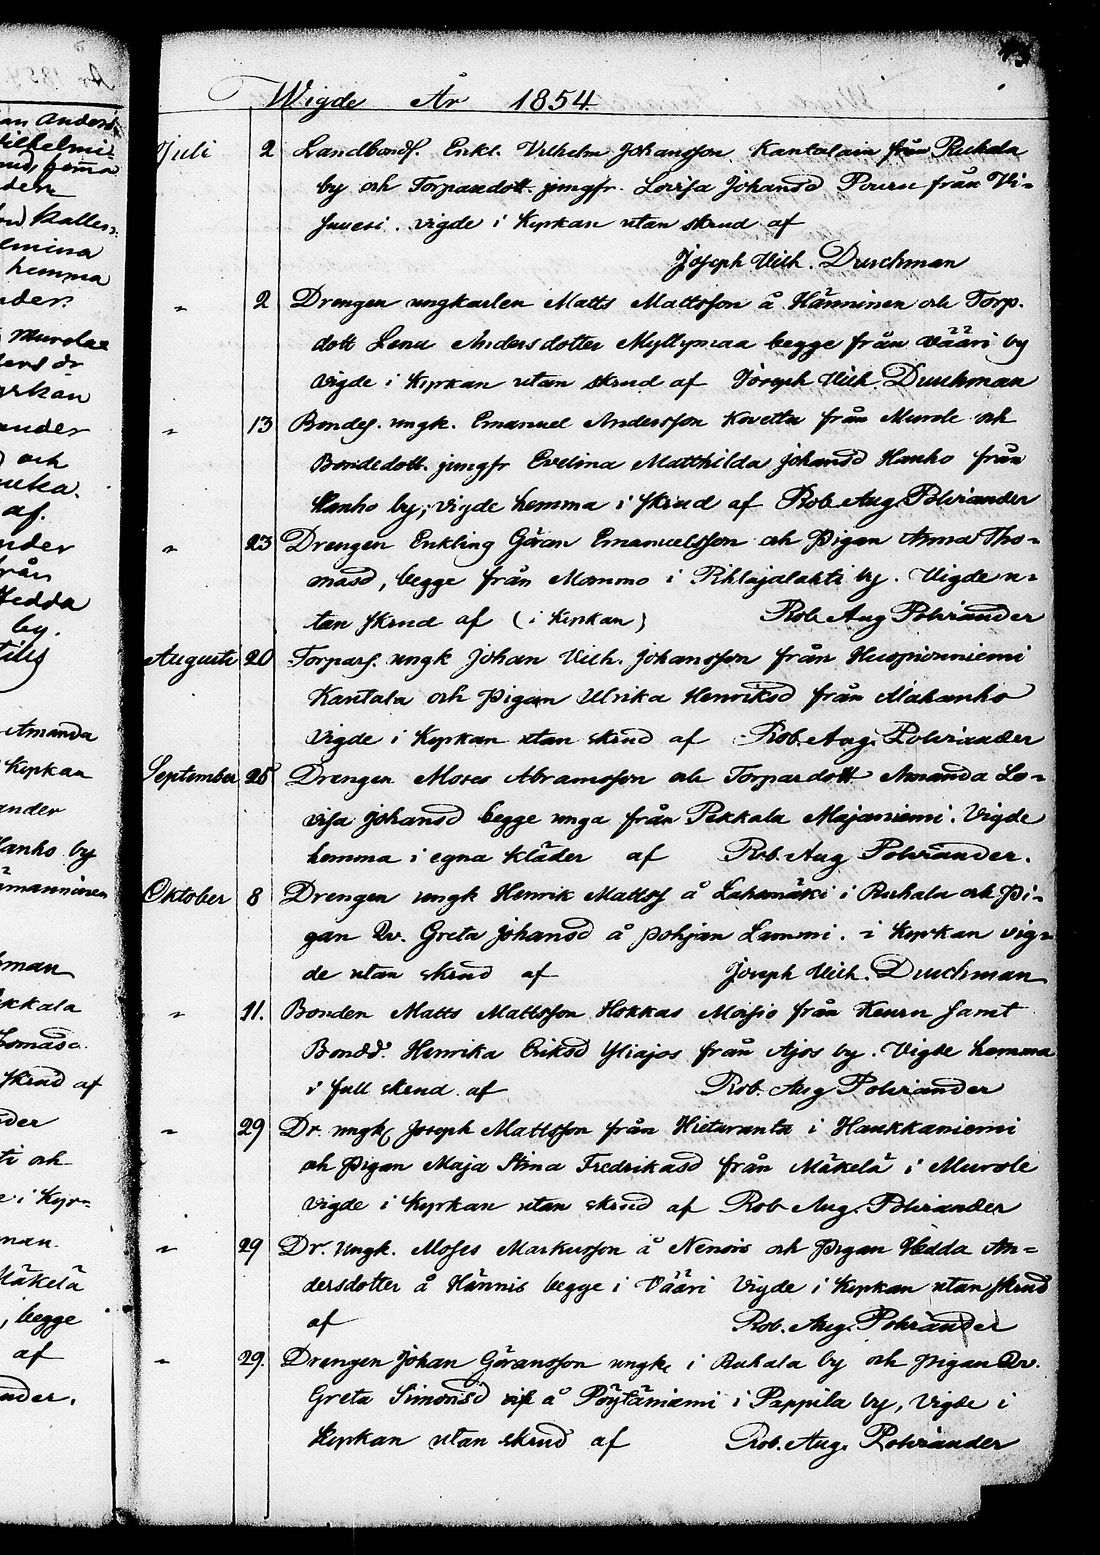 Wigde År 1854
Juli 2 Landbondf. Enkl. Vilhelm Johansson Kantalain från Ruhala
by och Torparedott. jungfr. Lovisa Johansd Pouru från Vi-
suvesi. vigde i Kyrkan utan skrud af
Joseph Vilh. Duschman
" 2 Drengen ungkarlen Matts Mattsson å Hänninen och Torp.
dott Lena Andersdotter Myllymaa begge från Vääri by
Vigde i Kyrkan utan skrud af Joseph Vilh. Duschman
" 13 Bondes. ungk. Emanuel Andersson Kovetta från Murole och
Bondedott. jungfr Evelina Matthilda Johansd Hanho från
Hanho by, vigde hemma i skrud af Rob. Aug. Polviander
" 23 Drengen Enkling Göran Emanuelsson och Pigan Anna Tho-
masd, begge från Mommo i Pihlajalahti by. Vigde u-
tan skrud af (i Kyrkan) Rob. Aug Polviander
Augusti 20 Torpars. ungk Johan Vilh. Johansson från Huspionniemi
Kantala och Pigan Ulrika Henriksd från Alahanho
Vigde i Kyrkan utan skrud af Rob. Aug. Polviander
September 25 Drengen Moses Abramsson och Torparedott Amanda Lo-
visa Johansd begge unga från Pekkala Majaniemi. Vigde
hemma i egna kläder af Rob. Aug Polviander.
Oktober 8 Drengen ungk Henrik Mattsf å Lahnmäki i Ruhala och Pi-
gan Qv. Greta Johansd å Pohjan Lammi. i Kyrkan vig-
de utan skrud af Joseph Vilh. Duschman
" 11. Bonden Matts Mattsson Hokkas Moisio från Keuru samt
Bondd. Henrika Eriksd Yliajos från Ajos by. Vigde hemma
i full skrud af Rob. Aug Polviander
" 29 Dr. ungk Joseph Mattsson från Hietaranta i Haukkaniemi
och Pigan Maja Stina Fredrikasd från Mäkelä i Murole
Vigde i Kyrkan utan skrud af Rob Aug. Polviander
" 29 Dr. Ungk. Moses Markusson å Nenois och Pigan Hedda An-
dersdotter å Hännis begge i Vääri Vigde i Kyrkan utan skrud
af Rob. Aug. Polviander
" 29. Drengen Johan Göransson ungk i Ruhala by och Pigan Qv.
Greta Simonsd å Pöytäniemi i Pappila by, Vigde i
Kyrkan utan skrud af Rob. Aug. Polviander